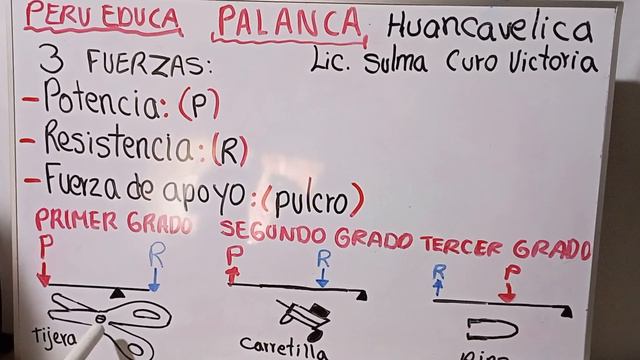 PERU EDUCA PALANCA Huancavelica
3 FUERZAS: Lic. Sulma Curo Victoria
- Potencia: (P)
- Resistencia: (R)
- Fuerza de apoyo: (pulcro)
PRIMER GRADO SEGUNDO GRADO TERCER GRADO
P R P R R P
tijera Carretilla